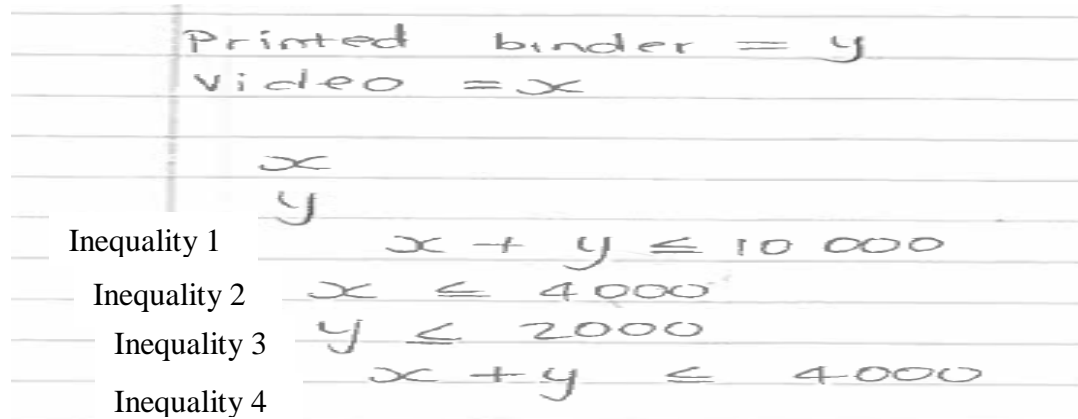 Printed binder = y
Video = x
x
y
Inequality 1 x + y ≤ 10 000
Inequality 2 x ≤ 4000
Inequality 3 y ≤ 2000
x + y ≤ 4000
Inequality 4